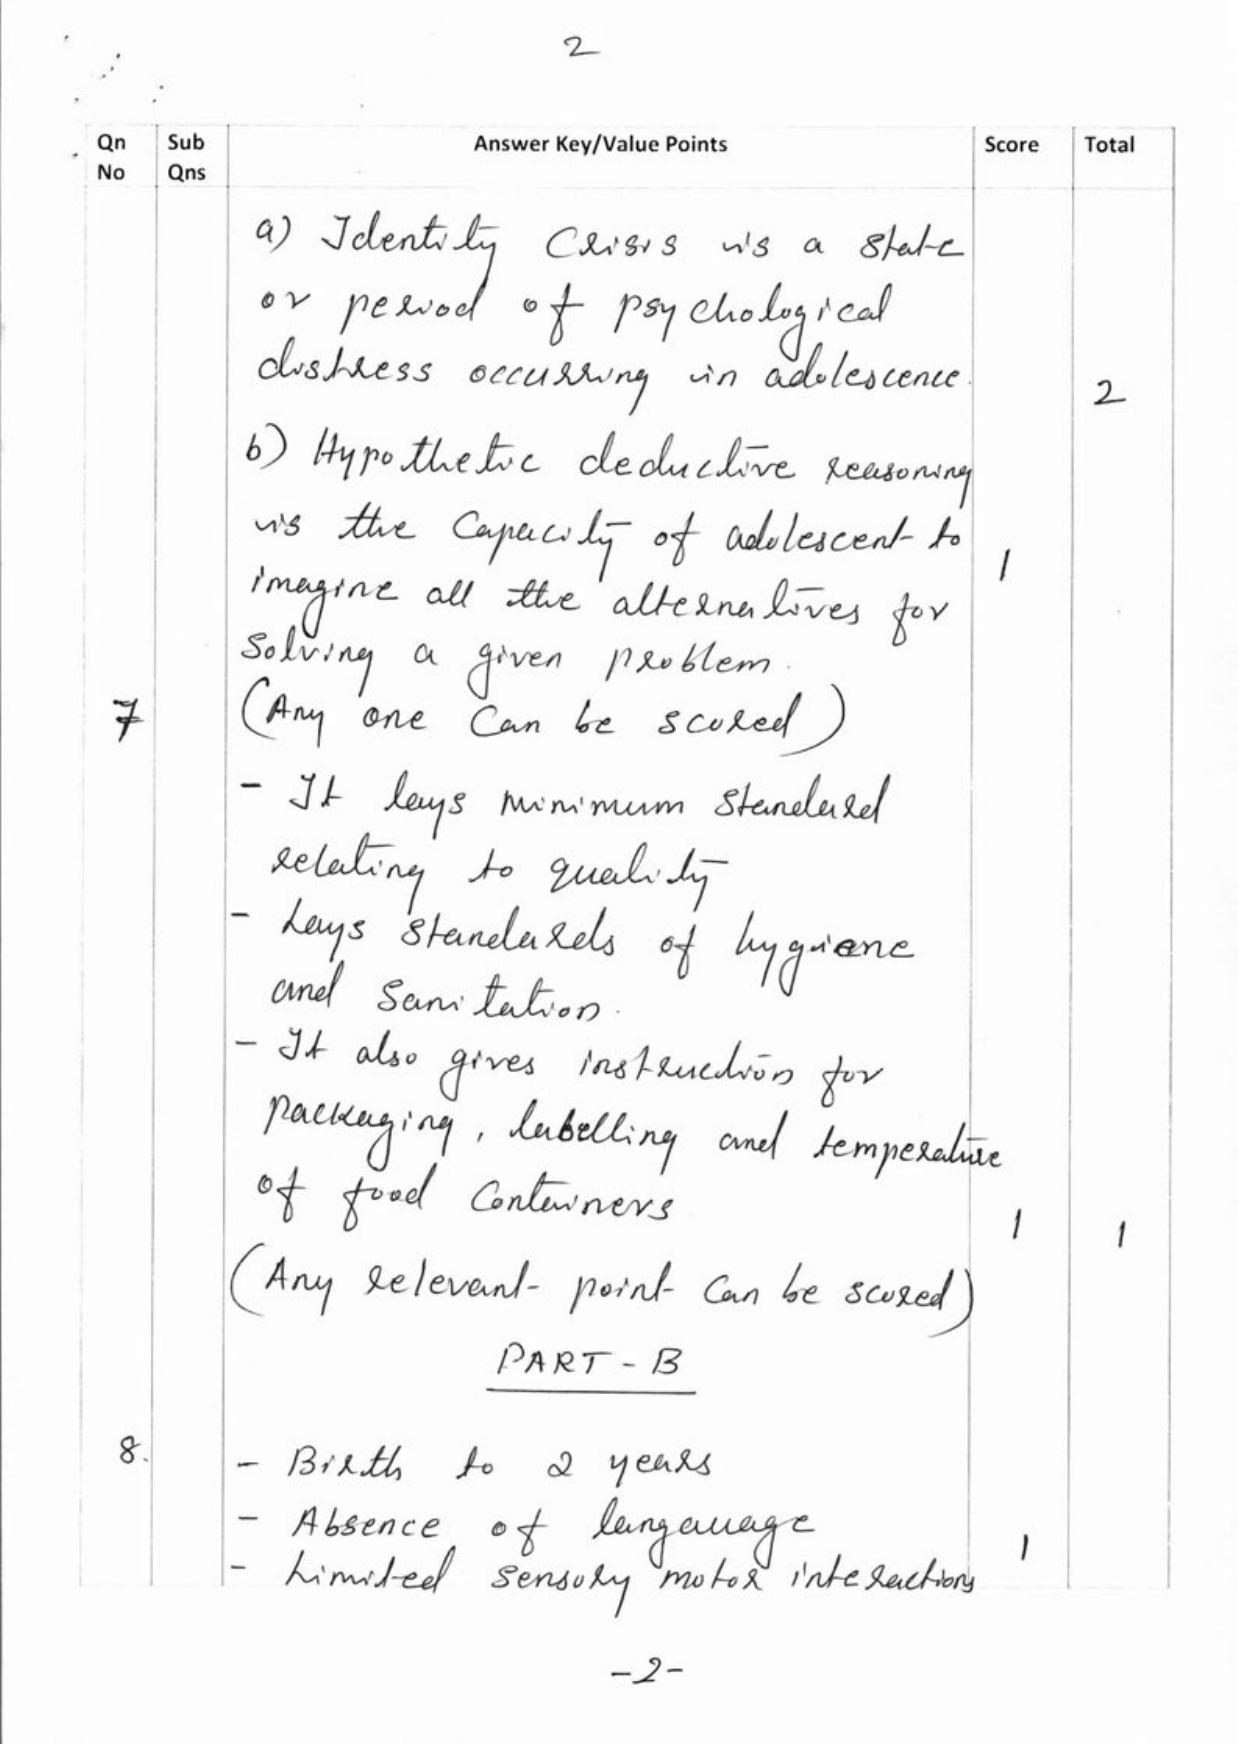 2
Qn No Sub Qns Answer Key/Value Points Score Total
a) Identity Crisis is a state
or period of psychological
distress occurring in adolescence.
2
b) Hypothetic deductive reasoning
is the Capacity of adolescent to
1
imagine all the alternatives for
solving a given problem.
7 (Any one Can be scored)
- It lays minimum standard
relating to quality
- Lays standards of hygiene
and sanitation.
- It also gives instruction for
packaging, labelling and temperature
of food Containers
1 1
(Any relevant point Can be scored)
PART - B
8. - Birth to 2 years
- Absence of langauage
1
- Limited sensory motor interactions
-2-